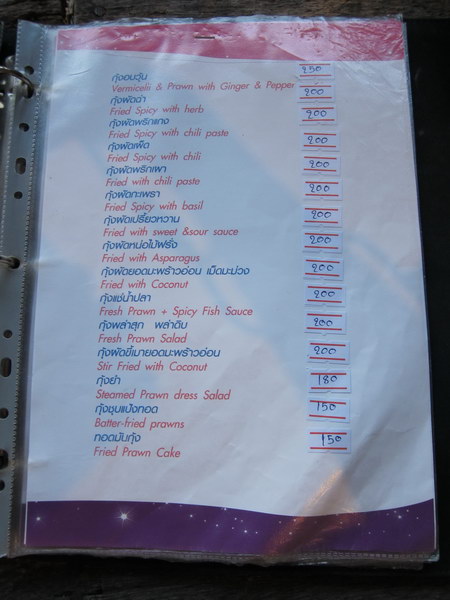 กุ้งอบวุ้น 250
Vermicelli & Prawn with Ginger & Pepper
กุ้งผัดฉ่า 200
Fried Spicy with herb
กุ้งผัดพริกแกง 200
Fried Spicy with chili paste
กุ้งผัดเผ็ด 200
Fried Spicy with chili
กุ้งผัดพริกเผา 200
Fried with chili paste
กุ้งผัดกะเพรา 200
Fried Spicy with basil
กุ้งผัดเปรี้ยวหวาน 200
Fried with sweet &sour sauce
กุ้งผัดหน่อไม้ฝรั่ง 200
Fried with Asparagus
กุ้งผัดยอดมะพร้าวอ่อน เม็ดมะม่วง 200
Fried with Coconut
กุ้งแช่น้ำปลา 200
Fresh Prawn + Spicy Fish Sauce
กุ้งพล่าสุก พล่าดิบ 200
Fresh Prawn Salad
กุ้งผัดขี้เมายอดมะพร้าวอ่อน 200
Stir Fried with Coconut
กุ้งยำ 180
Steamed Prawn dress Salad
กุ้งชุบแป้งทอด 150
Batter-fried prawns
ทอดมันกุ้ง 150
Fried Prawn Cake